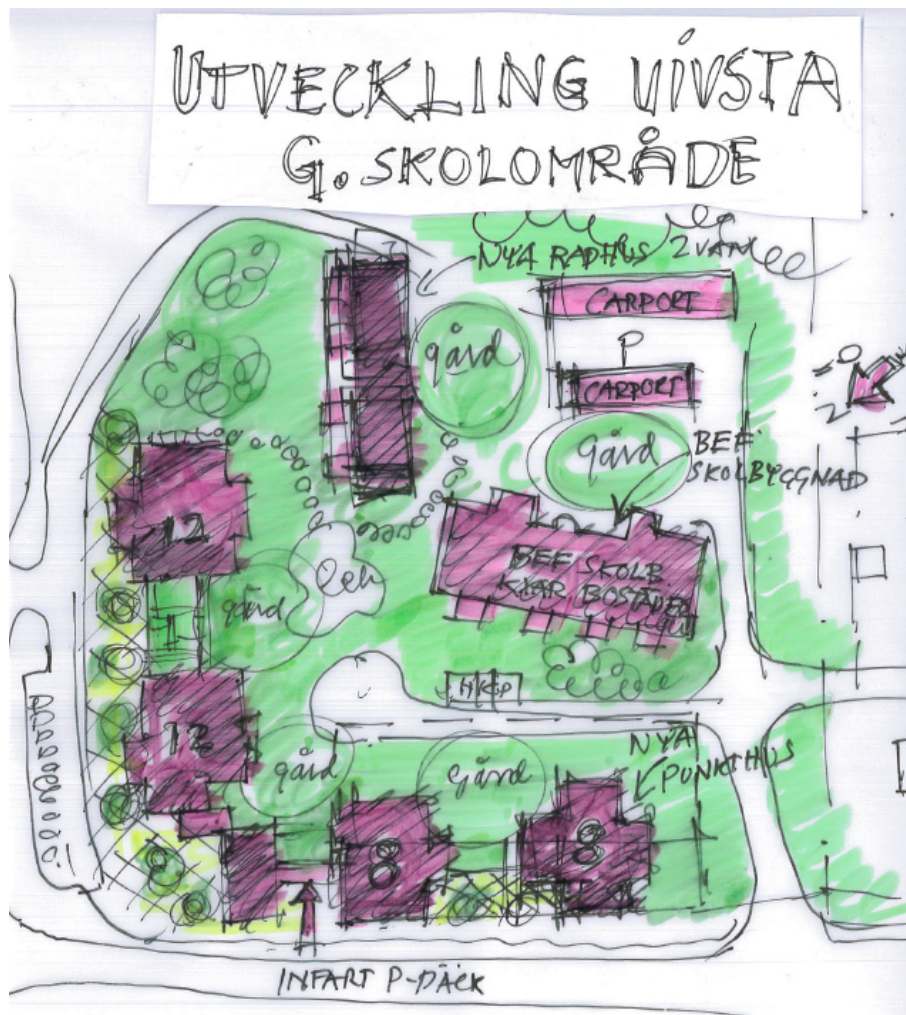 UTVECKLING VIVSTA
G. SKOLOMRÅDE
NYA RADHUS 2 VAN
CARPORT
gård
P
CARPORT
gård
BEF
SKOLBYGGNAD
12
BEF SKOLB
KVAR BOSTÄDER
gård
lek
HKP
12
gård
gård
NYA
PUNKTHUS
8
8
INFART P-DÄCK